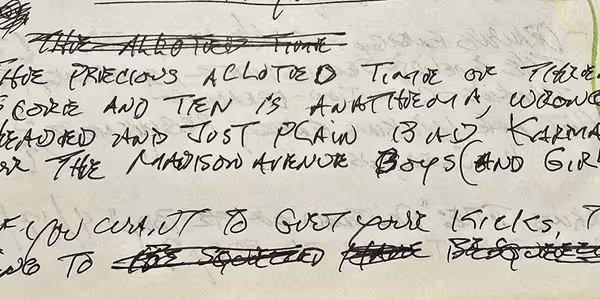 THE ALLOTED TIME
THE PRECIOUS ALLOTED TIME OF THREE
SCORE AND TEN IS ANATHEMA, WRONG
HEADED AND JUST PLAIN BAD KARMA
OR THE MADISON AVENUE BOYS (AND GIR
F YOU WANT TO GET YOUR KICKS, T
NG TO BE SQUEEZED HAVE BE SQUEEZE